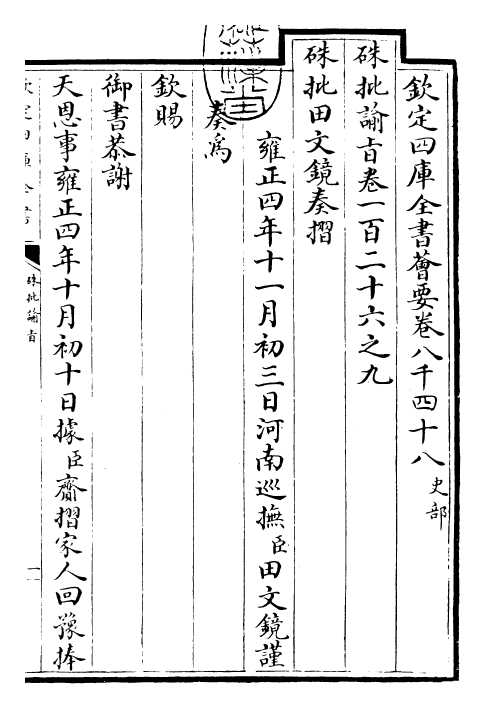 欽定四庫全書薈要卷八千四十八 史部
硃批諭旨卷一百二十六之九
硃批田文鏡奏摺
雍正四年十一月初三日河南巡撫臣田文鏡謹
奏爲
欽賜
御書恭謝
天恩事雍正四年十月初十日據臣齎摺家人回豫捧
硃批諭旨
一